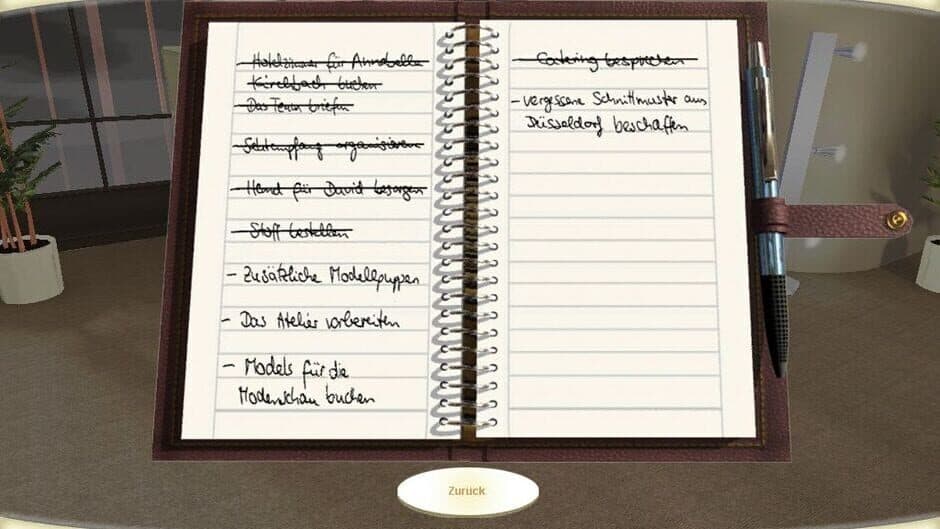 - Hotelzimmer für Annabelle
Kirschbach buchen
- Das Team briefen
- Sektempfang organisieren
- Hemd für David besorgen
- Stoff bestellen
- Zusätzliche Modellpuppen
- Das Atelier vorbereiten
- Models für die
Modenschau buchen
- Catering besprechen
- vergessene Schnittmuster aus
Düsseldorf beschaffen
Zurück